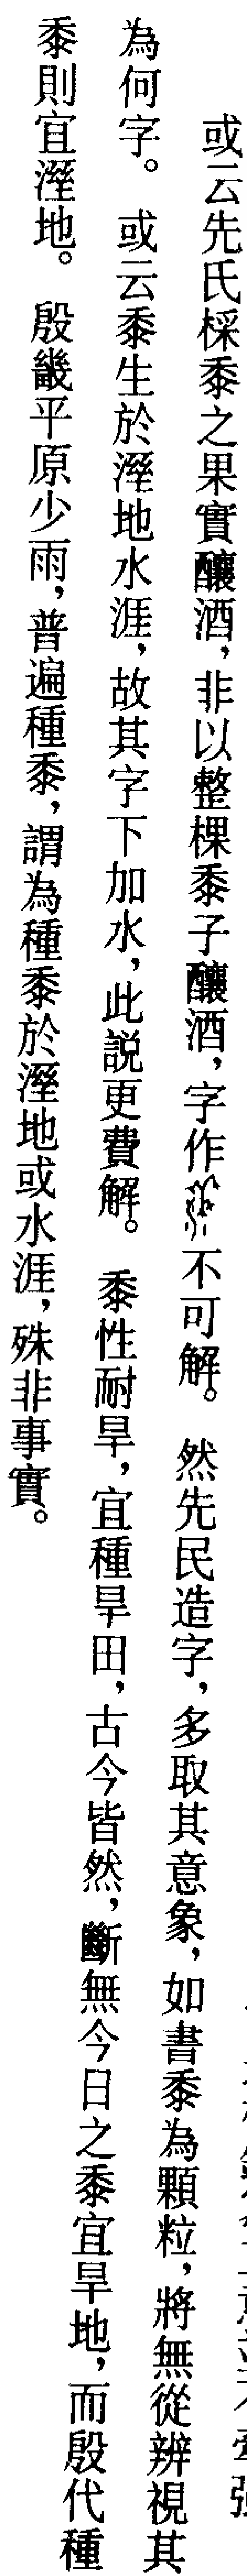 或云先氏採黍之果實釀酒，非以整棵黍子釀酒，字作不可解。　然先民造字，多取其意象，如書黍為顆粒，將無從辨視其
為何字。　或云黍生於溼地水涯，故其字下加水，此説更費解。　黍性耐旱，宜種旱田，古今皆然，斷無今日之黍宜旱地，而殷代種
黍則宜溼地。　殷畿平原少雨，普遍種黍，謂為種黍於溼地或水涯，殊非事實。